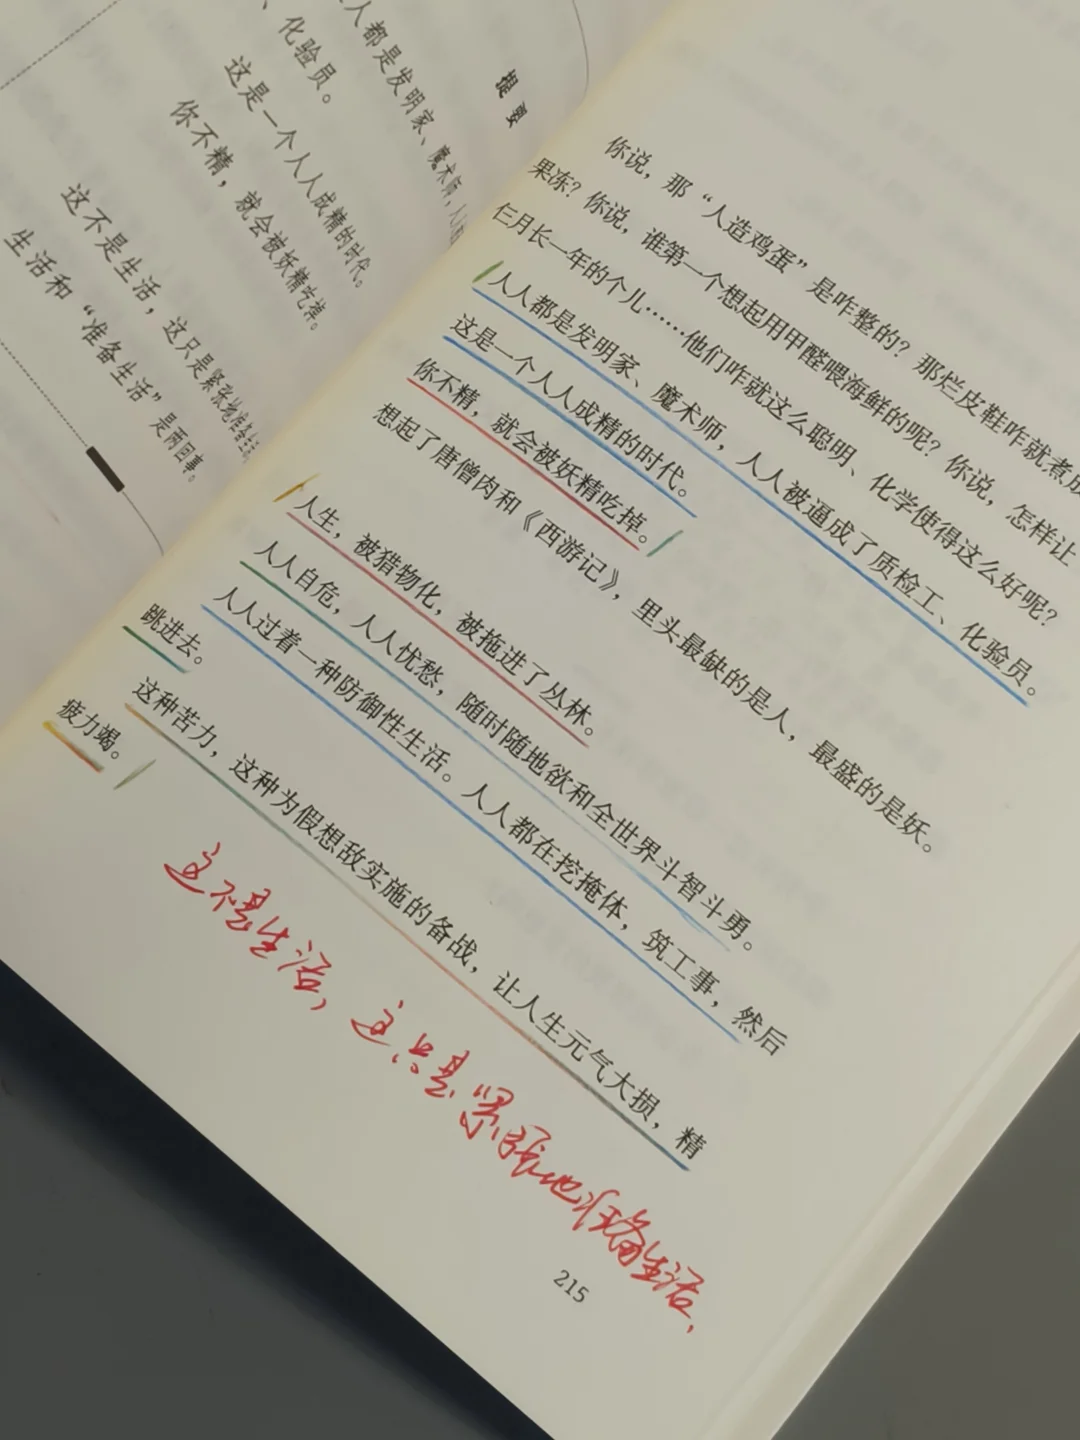 提要
人人都是发明家、魔术师，人人
、化验员。
这是一个人人成精的时代。
你不精，就会被妖精吃掉。
这不是生活，这只是紧张地准备生活，
生活和“准备生活”是两回事。
你说，那“人造鸡蛋”是咋整的？那烂皮鞋咋就煮成
果冻？你说，谁第一个想起用甲醛喂海鲜的呢？你说，怎样让
仨月长一年的个儿……他们咋就这么聪明、化学使得这么好呢？
人人都是发明家、魔术师，人人被逼成了质检工、化验员。
这是一个人人成精的时代。
你不精，就会被妖精吃掉。
想起了唐僧肉和《西游记》，里头最缺的是人，最盛的是妖。
人生，被猎物化，被拖进了丛林。
人人自危，人人忧愁，随时随地欲和全世界斗智斗勇。
人人过着一种防御性生活。人人都在挖掩体，筑工事，然后
跳进去。
这种苦力，这种为假想敌实施的备战，让人生元气大损，精
疲力竭。
这不是生活，这只是紧张地准备生活，
215